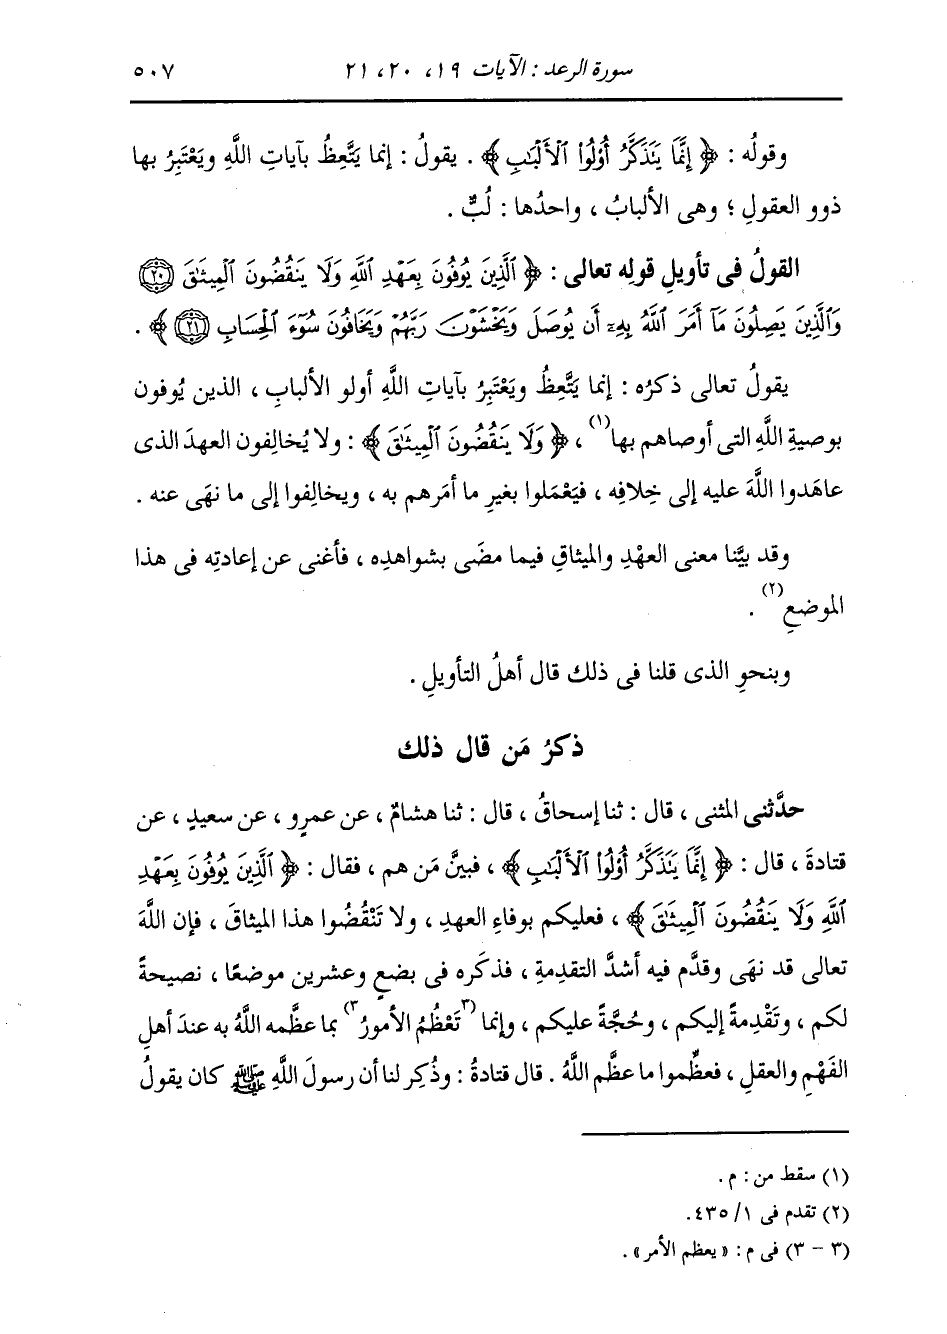 سورة الرعد : الآيات ١٩، ٢٠، ٢١ ٥٠٧
وقولُه : ﴿ إِنَّمَا يَتَذَكَّرُ أُوْلُوا۟ ٱلْأَلْبَٰبِ ﴾ . يقولُ : إنما يَتَّعِظُ بآياتِ اللَّهِ ويَعْتَبِرُ بها
ذوو العقولِ ؛ وهى الألبابُ ، واحدُها : لُبٌّ .
القولُ فى تأويلِ قولِه تعالى : ﴿ ٱلَّذِينَ يُوفُونَ بِعَهْدِ ٱللَّهِ وَلَا يَنقُضُونَ ٱلْمِيثَٰقَ ۝٢٠
وَٱلَّذِينَ يَصِلُونَ مَآ أَمَرَ ٱللَّهُ بِهِۦٓ أَن يُوصَلَ وَيَخْشَوْنَ رَبَّهُمْ وَيَخَافُونَ سُوٓءَ ٱلْحِسَابِ ۝٢١ ﴾ .
يقولُ تعالى ذكرُه : إنما يَتَّعِظُ ويَعْتَبِرُ بآياتِ اللَّهِ أولو الألبابِ ، الذين يُوفون
بوصيةِ اللَّهِ التى أوصاهم بها(١) ، ﴿ وَلَا يَنقُضُونَ ٱلْمِيثَٰقَ ﴾ : ولا يُخالِفون العهدَ الذى
عاهَدوا اللَّهَ عليه إلى خِلافِه ، فيَعْمَلوا بغيرِ ما أمَرهم به ، ويخالِفوا إلى ما نهَى عنه .
وقد بيَّنا معنى العهْدِ والميثاقِ فيما مضَى بشواهدِه ، فأغنى عن إعادتِه فى هذا
الموضعِ(٢) .
وبنحوِ الذى قلنا فى ذلك قال أهلُ التأويلِ .
ذكرُ مَن قال ذلك
حدَّثنى المثنى ، قال : ثنا إسحاقُ ، قال : ثنا هشامٌ ، عن عمرٍو ، عن سعيدٍ ، عن
قتادةَ ، قال : ﴿ إِنَّمَا يَتَذَكَّرُ أُوْلُوا۟ ٱلْأَلْبَٰبِ ﴾ ، فبيَّن مَن هم ، فقال : ﴿ ٱلَّذِينَ يُوفُونَ بِعَهْدِ
ٱللَّهِ وَلَا يَنقُضُونَ ٱلْمِيثَٰقَ ﴾ ، فعليكم بوفاءِ العهدِ ، ولا تَنْقُضُوا هذا الميثاقَ ، فإن اللَّهَ
تعالى قد نهَى وقدَّم فيه أشدَّ التقدِمةِ ، فذكَره فى بضعٍ وعشرين موضعًا ، نصيحةً
لكم ، وتَقْدِمةً إليكم ، وحُجَّةً عليكم ، وإنما (٣تَعْظُمُ الأمورُ٣) بما عظَّمه اللَّهُ به عندَ أهلِ
الفَهْمِ والعقلِ ، فعظِّموا ما عظَّم اللَّهُ . قال قتادةُ : وذُكِر لنا أن رسولَ اللَّهِ ﷺ كان يقولُ
(١) سقط من : م .
(٢) تقدم فى ١/ ٤٣٥.
(٣ – ٣) فى م : « يعظم الأمر » .